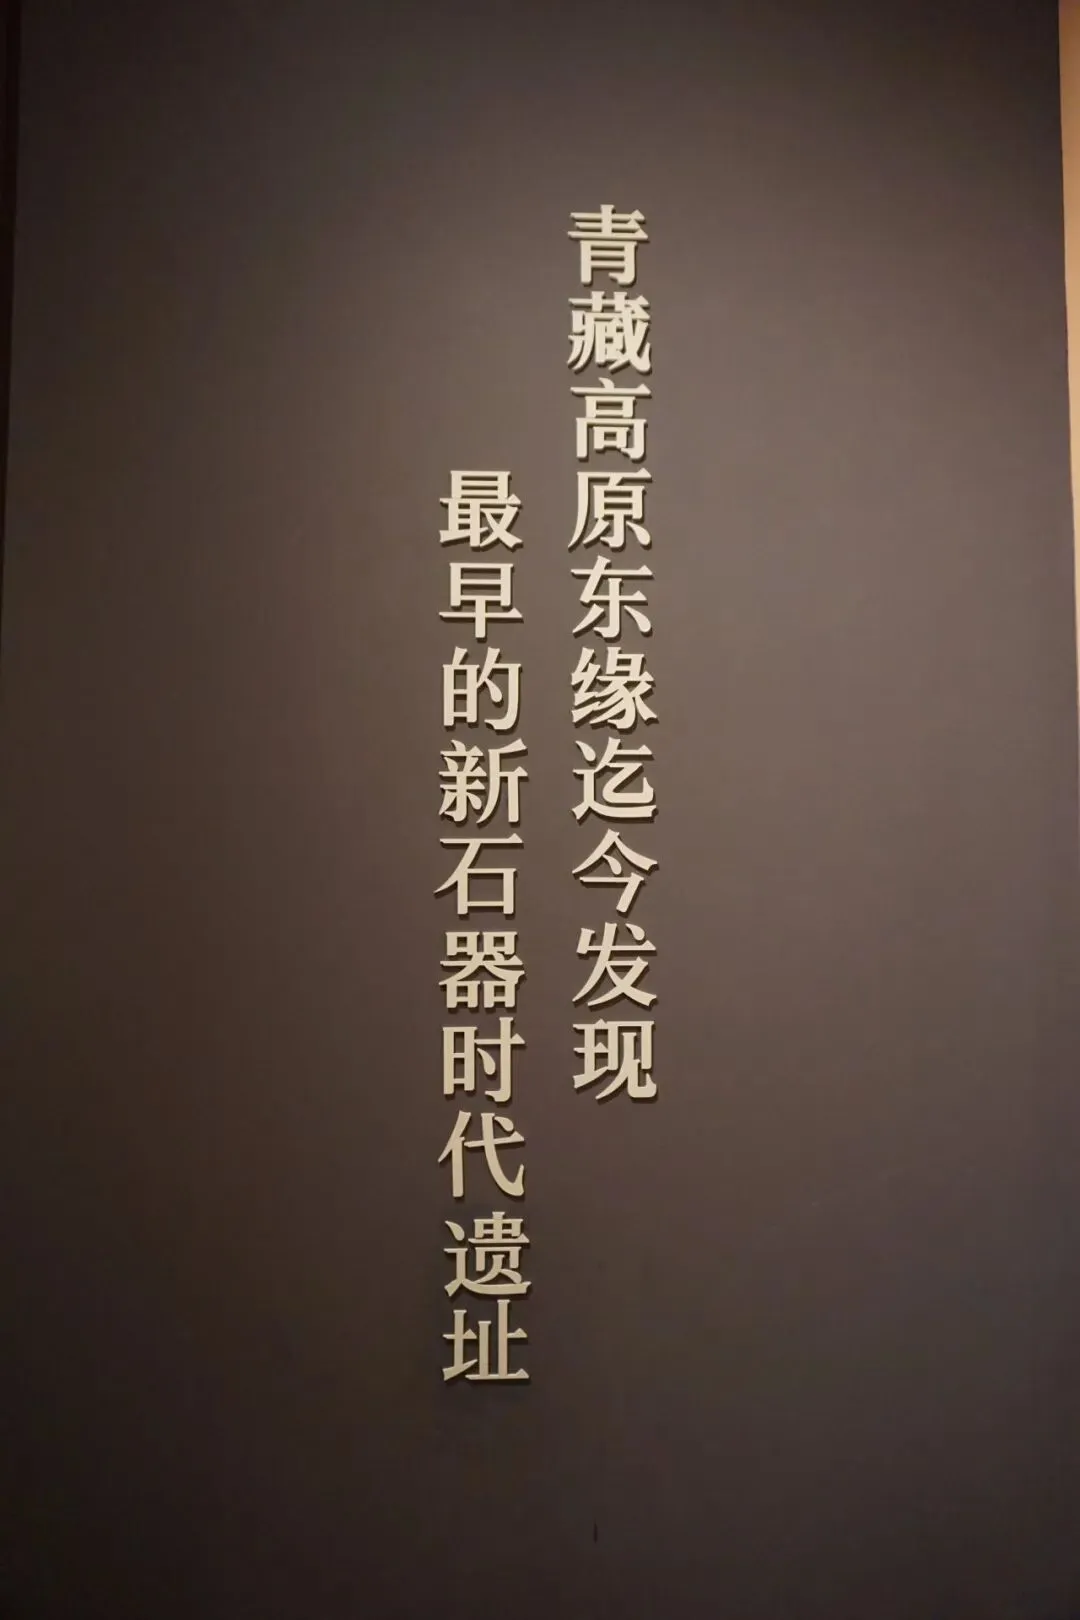 青藏高原东缘迄今发现
最早的新石器时代遗址